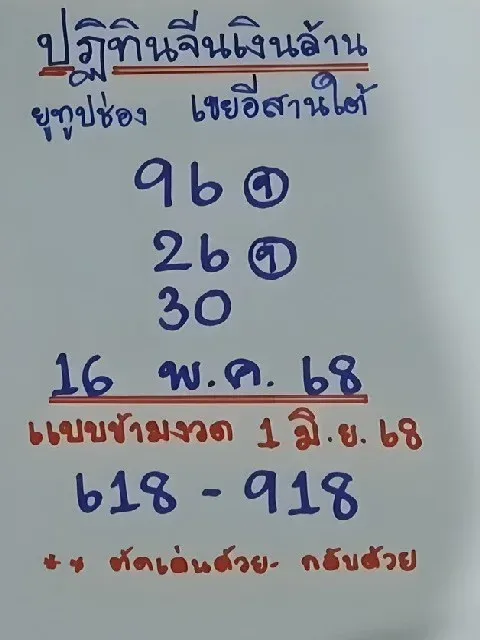 ปฏิทินจีนเงินล้าน
ยูทูปช่อง เขยอีสานใต้
96 ๆ
26 ๆ
30
16 พ.ค. 68
แบบข้ามงวด 1 มิ.ย. 68
618 - 918
** ตัดเล่นด้วย- กลับด้วย